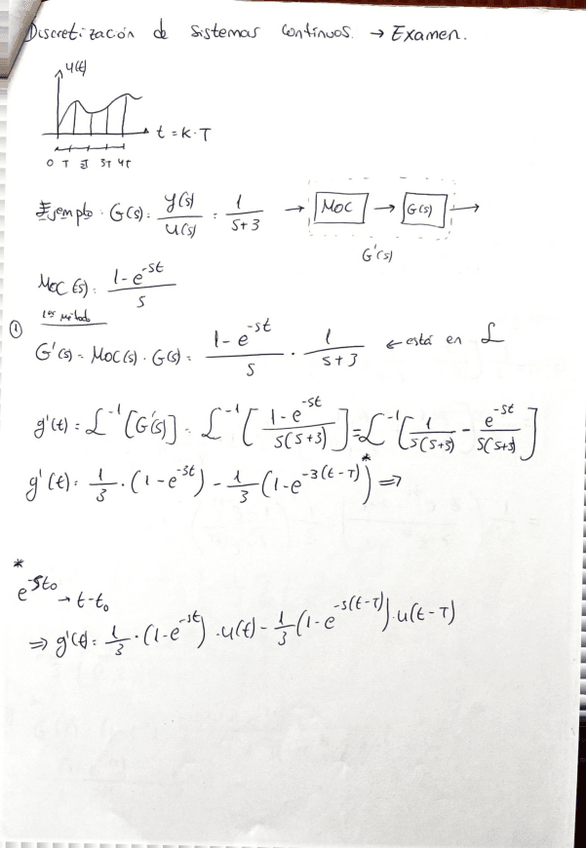 Discretización de sistemas continuos. → Examen.
u(t)
t = K·T
0 T 2T 3T 4T
Ejemplo. G(s) = y(s)/u(s) = 1/(s+3) → MOC → G(s) →
G'(s)
MOC(s) = (1-e^-st)/s
① 1er Método
G'(s) = MOC(s) · G(s) = (1-e^-st)/s · 1/(s+3) ← está en ℒ
g'(t) = ℒ^-1 [G'(s)] = ℒ^-1 [(1-e^-st)/(s(s+3))] = ℒ^-1 [1/(s(s+3)) - e^-st/(s(s+3))]
g'(t) = 1/3 · (1-e^-3t) - 1/3 (1-e^-3(t-T))* ⇒
*
e^-st₀ → t-t₀
⇒ g'(t) = 1/3 · (1-e^-3t) · u(t) - 1/3 (1-e^-3(t-T)) · u(t-T)